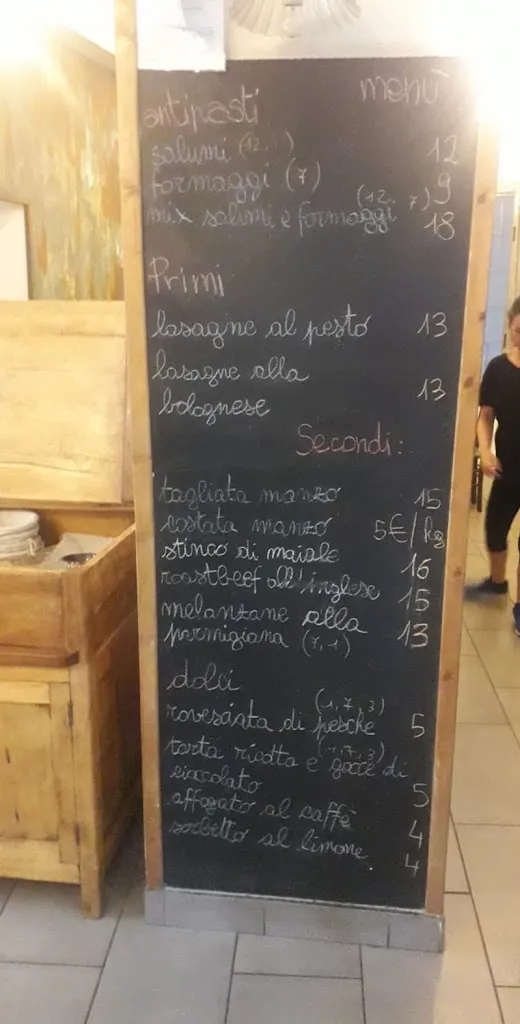 menù
antipasti
salumi (12, 1) 12
formaggi (7) 9
mix salumi e formaggi (12, 7) 18
Primi
lasagne al pesto 13
lasagne alla
bolognese 13
Secondi:
tagliata manzo 15
costata manzo 5€/hg
stinco di maiale 16
roastbeef all'inglese 15
melanzane alla
parmigiana (7,1) 13
dolci
rovesciata di pesche (1,7,3) 5
torta ricotta e gocce di (1,7,3)
cioccolato 5
affogato al caffè 4
sorbetto al limone 4